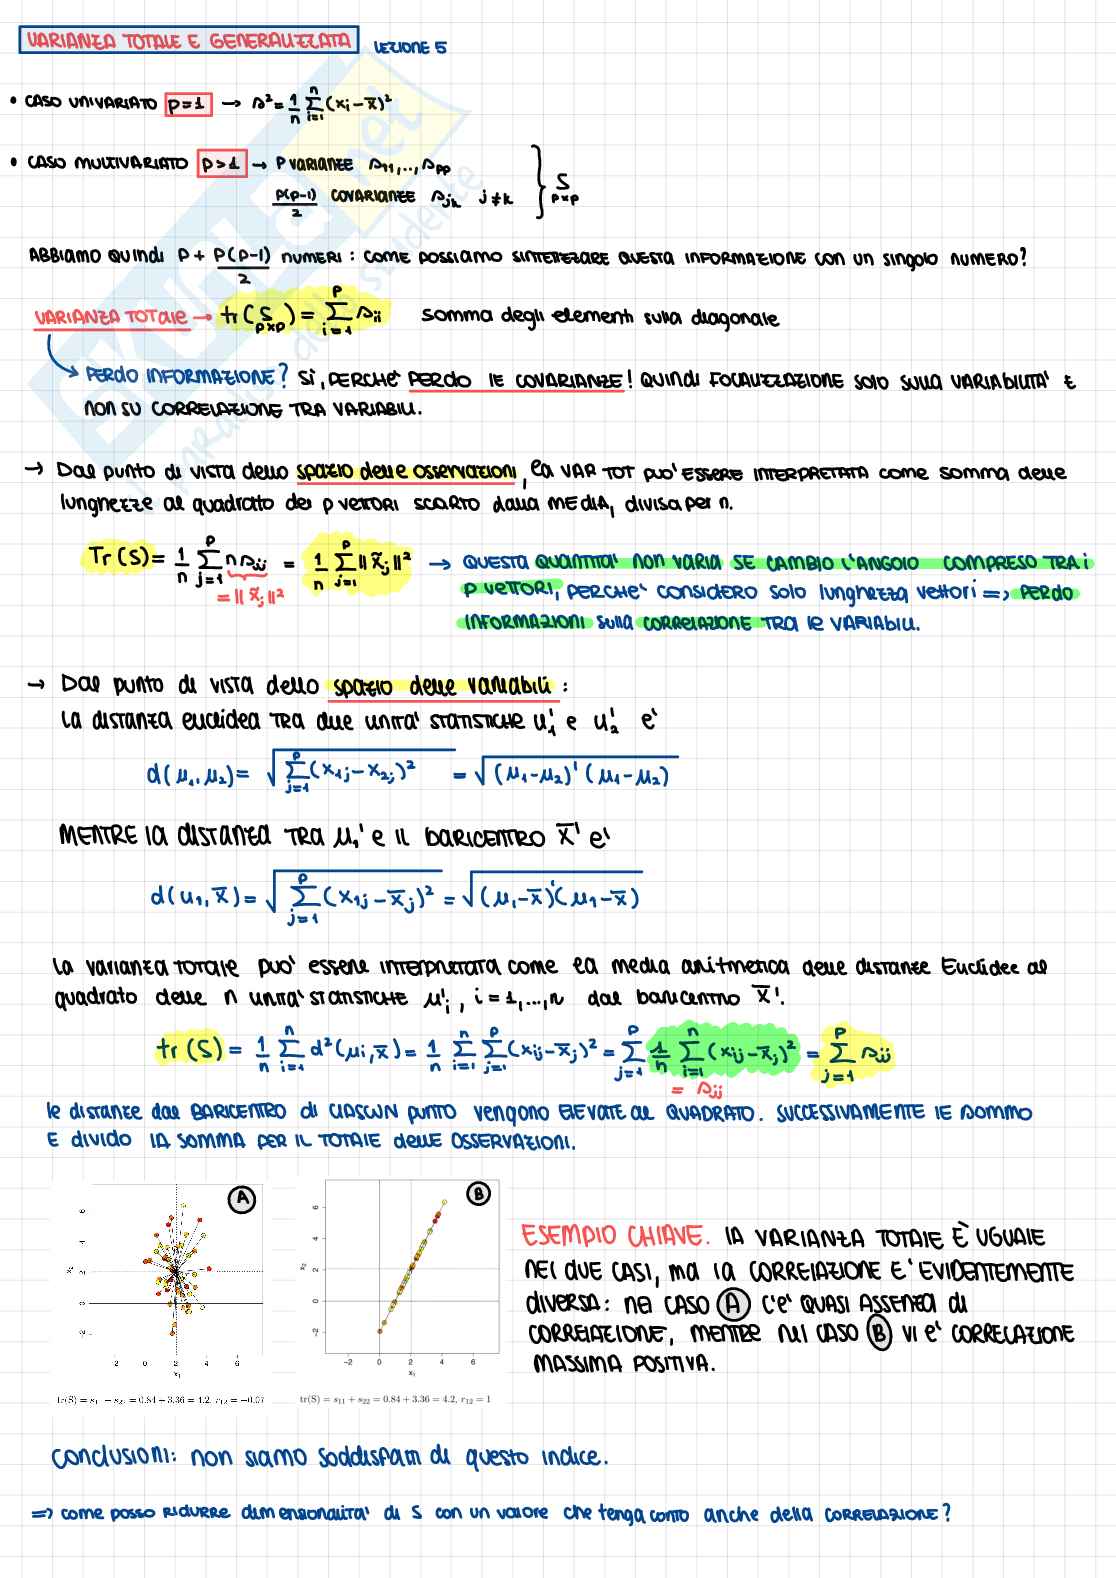 VARIANZA TOTALE E GENERALIZZATA LEZIONE 5
• CASO UNIVARIATO p=1 → s² = 1/n Σ_{i=1}^{n} (x_i − x̄)²
• CASO MULTIVARIATO p>1 → p VARIANZE s₁₁,..,s_pp
p(p-1)/2 COVARIANZE s_jk j≠k } S p×p
ABBIAMO QUINDI p + p(p-1)/2 NUMERI: COME POSSIAMO SINTETIZZARE QUESTA INFORMAZIONE CON UN SINGOLO NUMERO?
VARIANZA TOTALE → tr(S p×p) = Σ_{i=1}^{p} s_ii somma degli elementi sulla diagonale
PERDO INFORMAZIONE? SI, PERCHE' PERDO LE COVARIANZE! QUINDI FOCALIZZAZIONE SOLO SULLA VARIABILITA' E
NON SU CORRELAZIONE TRA VARIABILI.
→ Dal punto di vista dello spazio delle osservazioni, la VAR TOT PUO' ESSERE INTERPRETATA come somma delle
lunghezze al quadrato dei p VETTORI SCARTO dalla MEDIA, divisa per n.
Tr(S) = 1/n Σ_{j=1}^{p} n s_jj = 1/n Σ_{j=1}^{p} ||x̃_j||² → QUESTA QUANTITA' NON VARIA SE CAMBIO L'ANGOLO COMPRESO TRA i
= ||x̃_j||²
p VETTORI, PERCHE' CONSIDERO SOLO lunghezza vettori => PERDO
INFORMAZIONI sulla CORRELAZIONE TRA le VARIABILI.
→ Dal punto di vista dello spazio delle variabili:
la distanza euclidea TRA due unita' STATISTICHE u'₁ e u'₂ e'
d(u₁,u₂) = √Σ_{j=1}^{p} (x₁j − x₂j)² = √(u₁−u₂)'(u₁−u₂)
MENTRE la distanza TRA u₁' e il BARICENTRO x̄' e'
d(u₁,x̄) = √Σ_{j=1}^{p} (x₁j − x̄_j)² = √(u₁−x̄)'(u₁−x̄)
la varianza TOTALE puo' essere INTERPRETATA come la media aritmetica delle distanze Euclidee al
quadrato delle n unita' STATISTICHE u'_i, i=1,...,n dal baricentro x̄'.
tr(S) = 1/n Σ_{i=1}^{n} d²(u_i,x̄) = 1/n Σ_{i=1}^{n} Σ_{j=1}^{p} (x_ij − x̄_j)² = Σ_{j=1}^{p} 1/n Σ_{i=1}^{n} (x_ij − x̄_j)² = Σ_{j=1}^{p} s_jj
= s_jj
le distanze dal BARICENTRO di CIASCUN punto vengono ELEVATE al QUADRATO. SUCCESSIVAMENTE le sommo
E divido la SOMMA PER IL TOTALE delle OSSERVAZIONI.
A
B
x₂
x₁
-2 0 2 4 6
x₂
-2 0 2 4 6
x₁
tr(S) = s₁₁ + s₂₂ = 0.84 + 3.36 = 4.2, r₁₂ = −0.07
tr(S) = s₁₁ + s₂₂ = 0.84 + 3.36 = 4.2, r₁₂ = 1
ESEMPIO CHIAVE. LA VARIANZA TOTALE È UGUALE
NEI DUE CASI, ma la CORRELAZIONE E' EVIDENTEMENTE
DIVERSA: NEL CASO A C'E' QUASI ASSENZA di
CORRELAZIONE, MENTRE NEL CASO B VI E' CORRELAZIONE
MASSIMA POSITIVA.
Conclusioni: non siamo soddisfatti di questo indice.
=> come posso RIDURRE dimensionalita' di S con un valore che tenga conto anche della CORRELAZIONE?